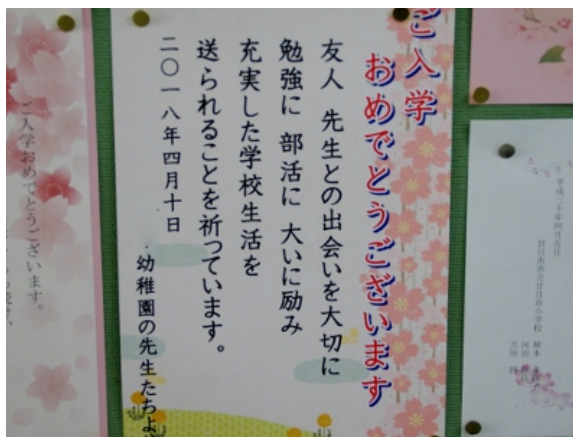 ご入学
おめでとうございます
友人 先生との出会いを大切に
勉強に 部活に 大いに励み
充実した学校生活を
送られることを祈っています。
二〇一八年四月十日
幼稚園の先生たちよ
平成三十年四月吉日
廿日市市立廿日市小学校
ご入学おめでとうございます。